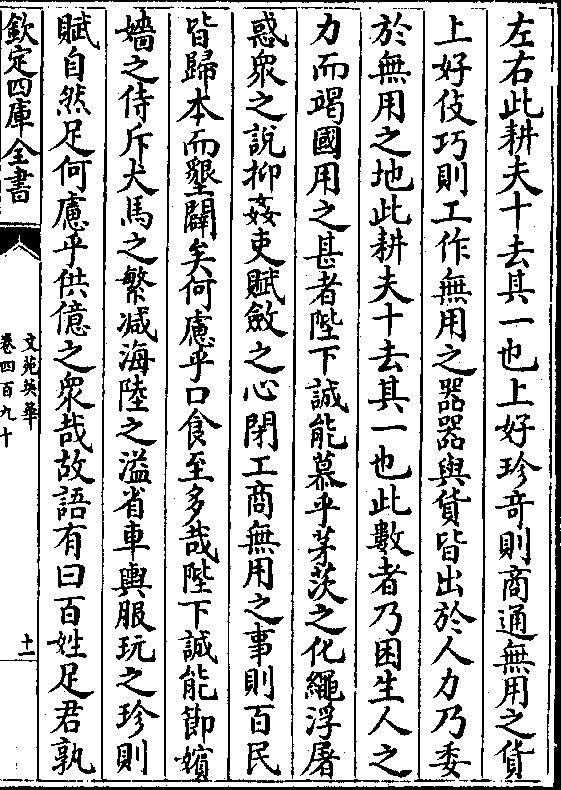 左右此耕夫十去其一也上好珍奇則商通無用之貨
上好伎巧則工作無用之器器與貨皆出於人力乃委
於無用之地此耕夫十去其一也此數者乃困生人之
力而竭國用之甚者陛下誠能慕乎茅茨之化繩浮屠
惑衆之說抑姦吏賦斂之心閉工商無用之事則百民
皆歸本而墾闢矣何慮乎口食至多哉陛下誠能節嬪
嬙之侍斥犬馬之繁减海陸之溢省車輿服玩之珍則
賦自然足何慮乎供億之衆哉故語有曰百姓足君孰
欽定四庫全書
文苑英華
卷四百九十
十一